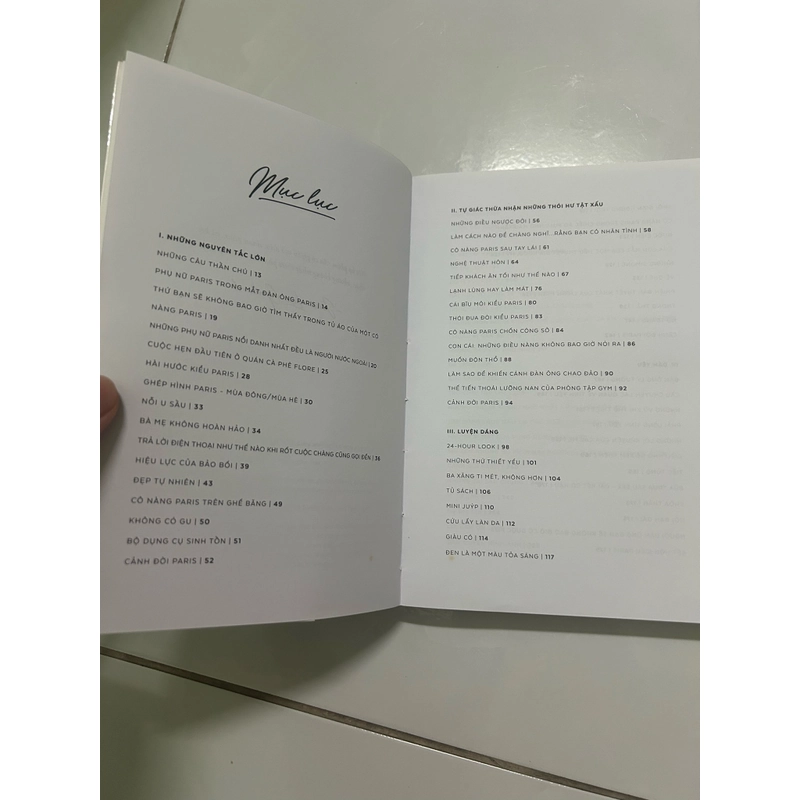 Mục lục
I. NHỮNG NGUYÊN TẮC LỚN
NHỮNG CÂU THẦN CHÚ | 13
PHỤ NỮ PARIS TRONG MẮT ĐÀN ÔNG PARIS | 14
THỨ BẠN SẼ KHÔNG BAO GIỜ TÌM THẤY TRONG TỦ ÁO CỦA MỘT CÔ
NÀNG PARIS | 19
NHỮNG PHỤ NỮ PARIS NỔI DANH NHẤT ĐỀU LÀ NGƯỜI NƯỚC NGOÀI | 20
CUỘC HẸN ĐẦU TIÊN Ở QUÁN CÀ PHÊ FLORE | 25
HÀI HƯỚC KIỂU PARIS | 28
GHÉP HÌNH PARIS – MÙA ĐÔNG/MÙA HÈ | 30
NỖI U SẦU | 33
BÀ MẸ KHÔNG HOÀN HẢO | 34
TRẢ LỜI ĐIỆN THOẠI NHƯ THẾ NÀO KHI RỐT CUỘC CHÀNG CŨNG GỌI ĐẾN | 36
HIỆU LỰC CỦA BẢO BỐI | 39
ĐẸP TỰ NHIÊN | 43
CÔ NÀNG PARIS TRÊN GHẾ BĂNG | 49
KHÔNG CÓ GU | 50
BỘ DỤNG CỤ SINH TỒN | 51
CẢNH ĐỜI PARIS | 52
II. TỰ GIÁC THỪA NHẬN NHỮNG THÓI HƯ TẬT XẤU
NHỮNG ĐIỀU NGƯỢC ĐỜI | 56
LÀM CÁCH NÀO ĐỂ CHÀNG NGHĨ...RẰNG BẠN CÓ NHÂN TÌNH | 58
CÔ NÀNG PARIS SAU TAY LÁI | 61
NGHỆ THUẬT HÔN | 64
TIẾP KHÁCH ĂN TỐI NHƯ THẾ NÀO | 67
LẠNH LÙNG HAY LÀM MÁT | 76
CÁI BĨU MÔI KIỂU PARIS | 80
THÓI ĐUA ĐÒI KIỂU PARIS | 83
CÔ NÀNG PARIS CHỐN CÔNG SỞ | 84
CON CÁI: NHỮNG ĐIỀU NÀNG KHÔNG BAO GIỜ NÓI RA | 86
MUỐN ĐỒN THỔ | 88
LÀM SAO ĐỂ KHIẾN CÁNH ĐÀN ÔNG CHAO ĐẢO | 90
THẾ TIẾN THOÁI LƯỠNG NAN CỦA PHÒNG TẬP GYM | 92
CẢNH ĐỜI PARIS | 94
III. LUYỆN DÁNG
24-HOUR LOOK | 98
NHỮNG THỨ THIẾT YẾU | 101
BA XĂNG TI MÉT, KHÔNG HƠN | 104
TỦ SÁCH | 106
MINI JUÝP | 110
CỨU LẤY LÀN DA | 112
GIÀU CÓ | 114
ĐEN LÀ MỘT MÀU TỎA SÁNG | 117